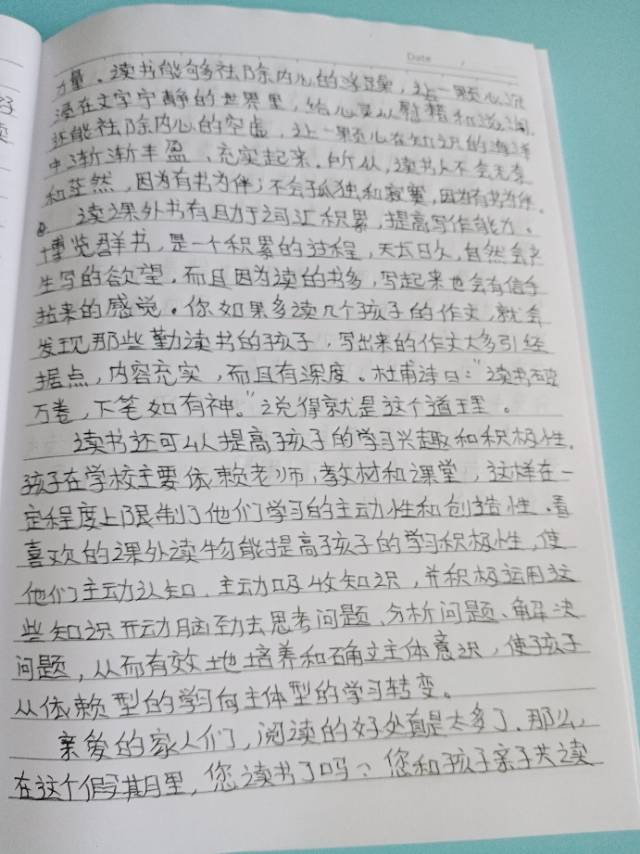 Date
力量。读书能够祛除内心的浮躁，让一颗心沉
浸在文字宁静的世界里，给心灵以慰藉和滋润。
还能祛除内心的空虚，让一颗心在知识的海洋
中渐渐丰盈、充实起来。所以，读书人不会无奈
和茫然，因为有书为伴；不会孤独和寂寞，因为有书为伴。
读课外书有且力于词汇积累，提高写作能力。
博览群书，是一个积累的过程，天长日久，自然会产
生写的欲望，而且因为读的书多，写起来也会有信手
拈来的感觉。你如果多读几个孩子的作文，就会
发现那些勤读书的孩子，写出来的作文大多引经
据点，内容充实，而且有深度。杜甫诗曰：“读书破
万卷，下笔如有神。”说得就是这个道理。
读书还可以提高孩子的学习兴趣和积极性。
孩子在学校主要依赖老师，教材和课堂，这样在一
定程度上限制了他们学习的主动性和创造性。看
喜欢的课外读物能提高孩子的学习积极性，使
他们主动认知、主动吸收知识，并积极运用这
些知识开动脑筋去思考问题、分析问题、解决
问题，从而有效地培养和确立主体意识，使孩子
从依赖型的学习向主体型的学习转变。
亲爱的家人们，阅读的好处真是太多了。那么，
在这个假期里，您读书了吗？您和孩子亲子共读